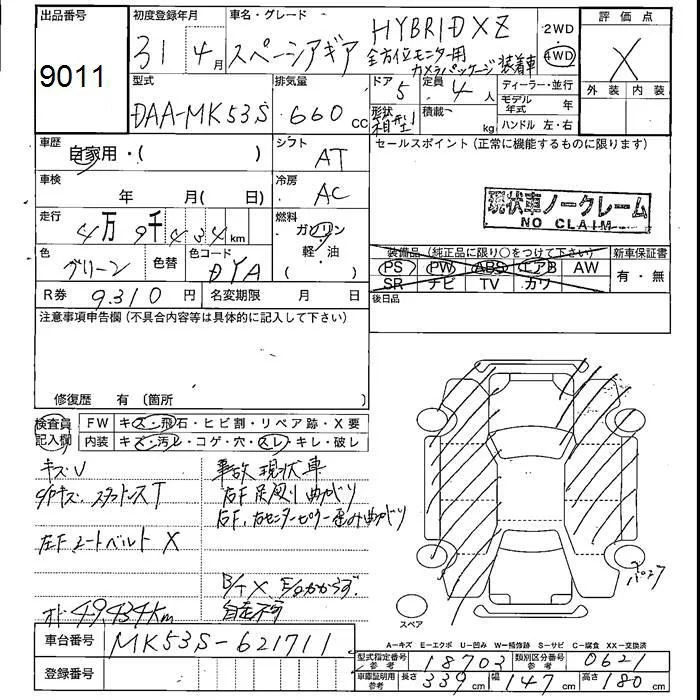 出品番号
9011
初度登録年月
31 4月
車名・グレード
スペーシアギア
HYBRID XZ
全方位モニター用
カメラパッケージ 装着車
2WD
4WD
評価点
X
外装 内装
型式
DAA-MK53S
排気量
660 cc
ドア 5
定員 4 人
形状 箱型
積載 kg
ディーラー・並行
モデル年式 年
ハンドル 左・右
車歴
自家用・( )
シフト
AT
セールスポイント (正常に機能するものに限ります)
車検
年 月( 日)
冷房
AC
現状車ノークレーム
NO CLAIM
走行
4万 9千 434 km
燃料
ガソリン
軽・油
( )
色
グリーン
色替
色コード
DYA
装備品 (純正品に限り○をつけて下さい)
PS PW ABS エアB AW
SR ナビ TV カワ
新車保証書
有・無
R券 9.310 円
名変期限 月 日
後日品
注意事項申告欄 (不具合内容等は具体的に記入して下さい)
修復歴 有 (箇所 )
検査員記入欄
FW キズ・飛石・ヒビ割・リペア跡・X要
内装 キズ・汚レ・コゲ・穴・スレ・キレ・破レ
キズU
左F シートベルト X
オド 49,434km
事故現状車
右F 足廻り 曲がり
右F、右センターピラー 歪み曲がり
B/T X E/gかからず
自走不可
パンク
スペア
車台番号 MK53S-621711
登録番号
A-キズ E-エクボ U-凹み W-補修跡 S-サビ C-腐食 XX-交換済
型式指定番号 参考 18703
類別区分番号 参考 0621
車庫証明用 参考 長さ 339 cm 幅 147 cm 高さ 180 cm